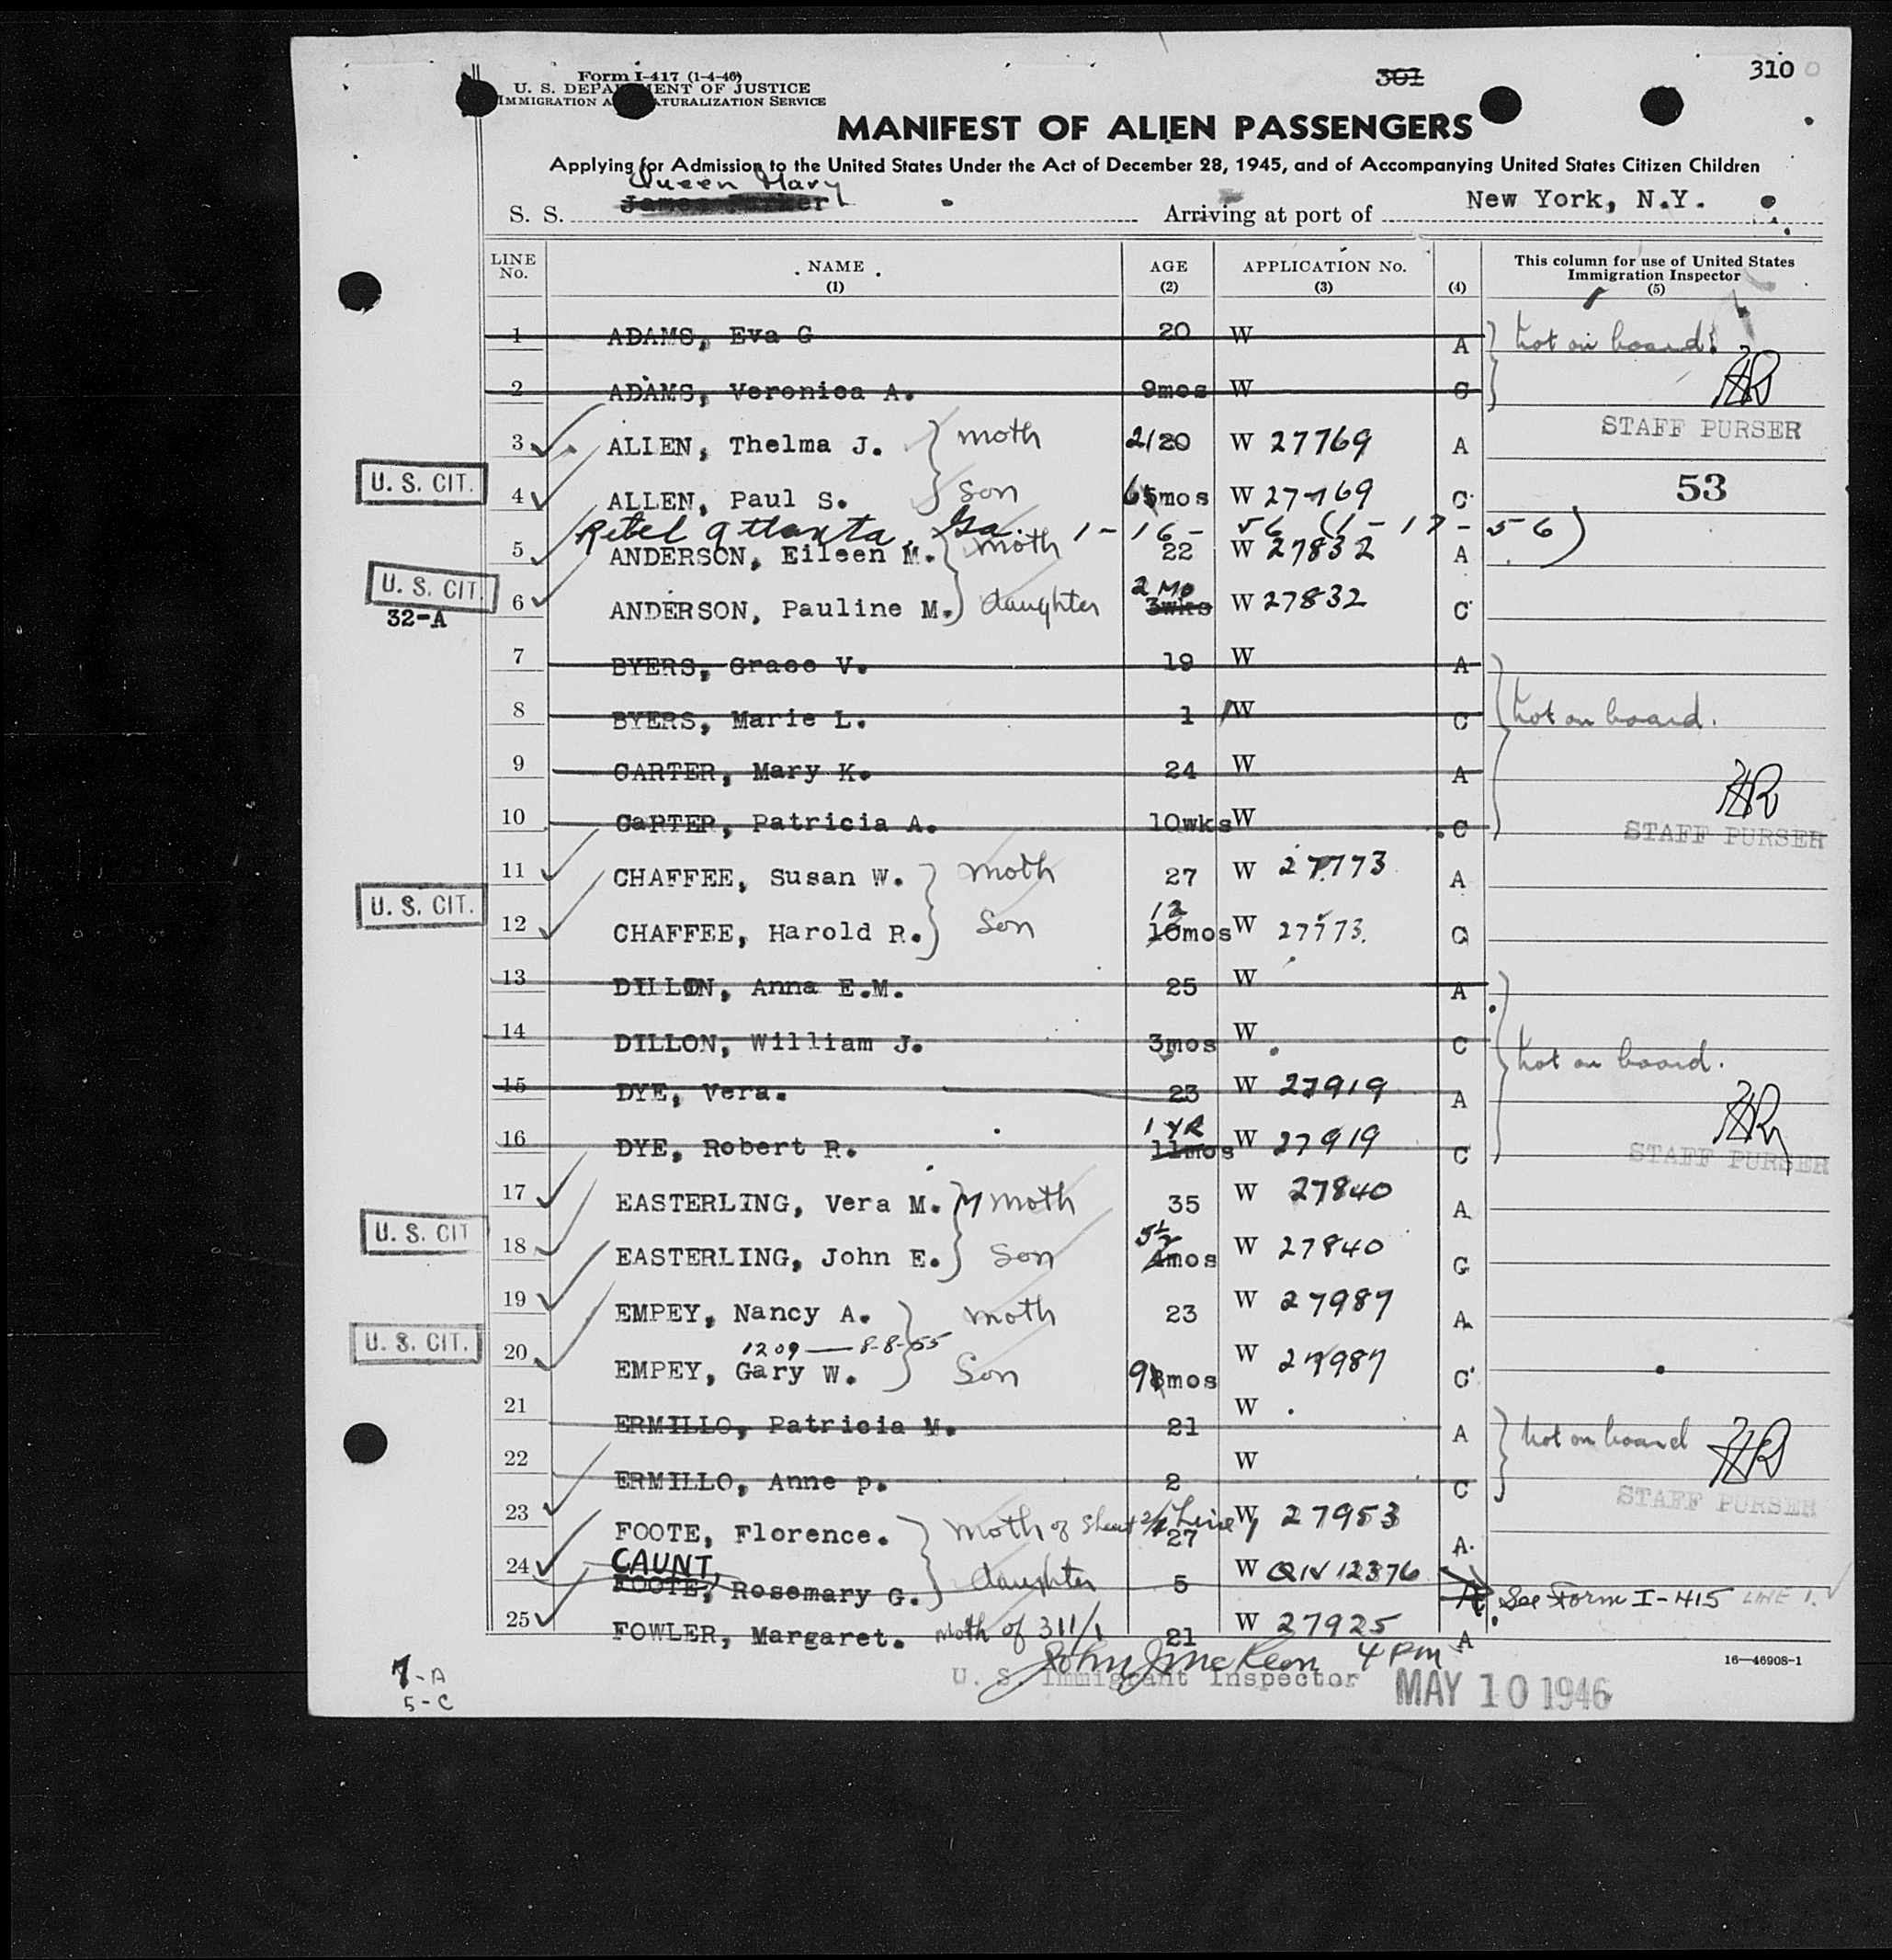 Form I-417 (1-4-46) 301 310
U. S. DEPARTMENT OF JUSTICE
IMMIGRATION AND NATURALIZATION SERVICE
MANIFEST OF ALIEN PASSENGERS
Applying for Admission to the United States Under the Act of December 28, 1945, and of Accompanying United States Citizen Children
Queen Mary
S. S. James Parker Arriving at port of New York, N.Y.
LINE No. NAME (1) AGE (2) APPLICATION No. (3) (4) This column for use of United States Immigration Inspector (5)
1 ADAMS, Eva G 20 W A not on board.
2 ADAMS, Veronica A. 9mos W C HR
STAFF PURSER
3 ALLEN, Thelma J. moth 21 20 W 27769 A
U. S. CIT. 4 ALLEN, Paul S. Son 6 5mos W 27769 C 53
Retel Atlanta, Ga. 1-16-56 (1-17-56)
5 ANDERSON, Eileen M. moth 22 W 27832 A
U. S. CIT. 6 ANDERSON, Pauline M. daughter 2 Mo 3wks W 27832 C
32-A
7 BYERS, Grace V. 19 W A
8 BYERS, Marie L. 1 W C not on board.
9 CARTER, Mary K. 24 W A HR
10 CaRTER, Patricia A. 10wks W C STAFF PURSER
11 CHAFFEE, Susan W. moth 27 W 27773 A
U. S. CIT. 12 CHAFFEE, Harold R. Son 12 10mos W 27773. C
13 DILLON, Anna E.M. 25 W A
14 DILLON, William J. 3mos W C not on board.
15 DYE, Vera. 23 W 27919 A HR
16 DYE, Robert R. 1 YR 11mos W 27919 C STAFF PURSER
17 EASTERLING, Vera M. M moth 35 W 27840 A
U. S. CIT 18 EASTERLING, John E. Son 5½ 4mos W 27840 C
19 EMPEY, Nancy A. moth 23 W 27987 A
1209 — 8-8-55
U. S. CIT. 20 EMPEY, Gary W. Son 9 8mos W 27987 C
21 ERMILLO, Patricia M. 21 W A not on board HR
22 ERMILLO, Anne p. 2 W C STAFF PURSER
23 FOOTE, Florence. moth of Sheet Line 1 27 W 27953 A
24 CAUNT, FOOTE, Rosemary G. daughter 5 W QIV 12376 A See Form I-415 LINE 1.
25 FOWLER, Margaret. moth of 311/1 21 W 27925 A
7-A
5-C
John J McKeon 4 PM
U. S. Immigrant Inspector MAY 10 1946
16—46908-1